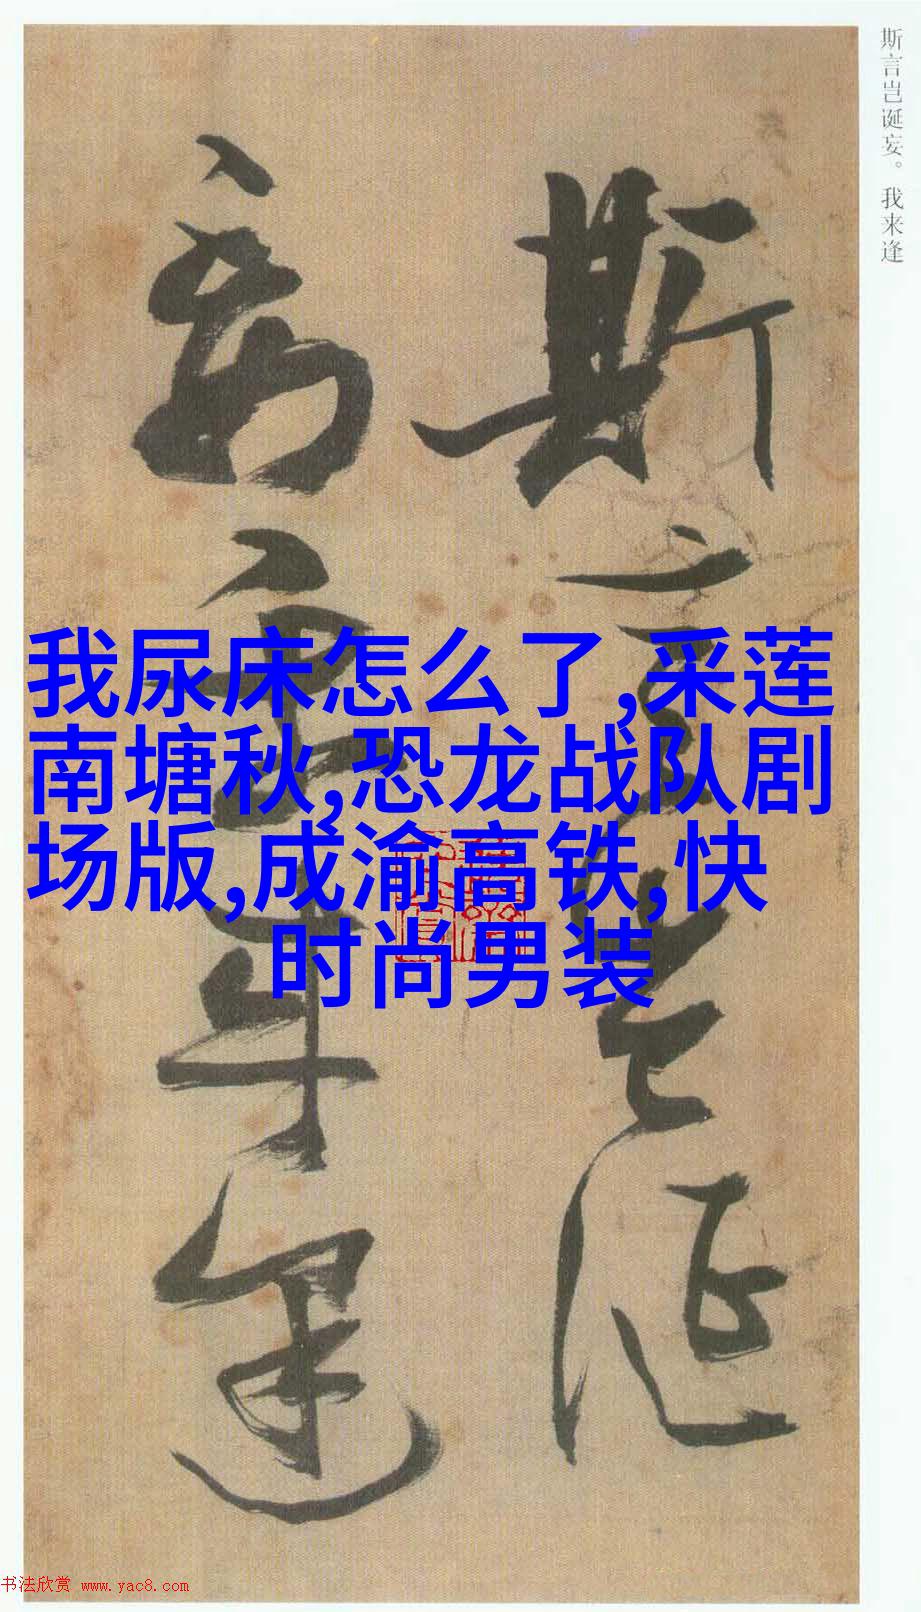 斯言岂诞妄。我来逢
斯言豈誕
妄我来逢
我尿床怎么了,采莲
南塘秋,恐龙战队剧
场版,成渝高铁,快
时尚男装
书法欣赏 www.yac8.com